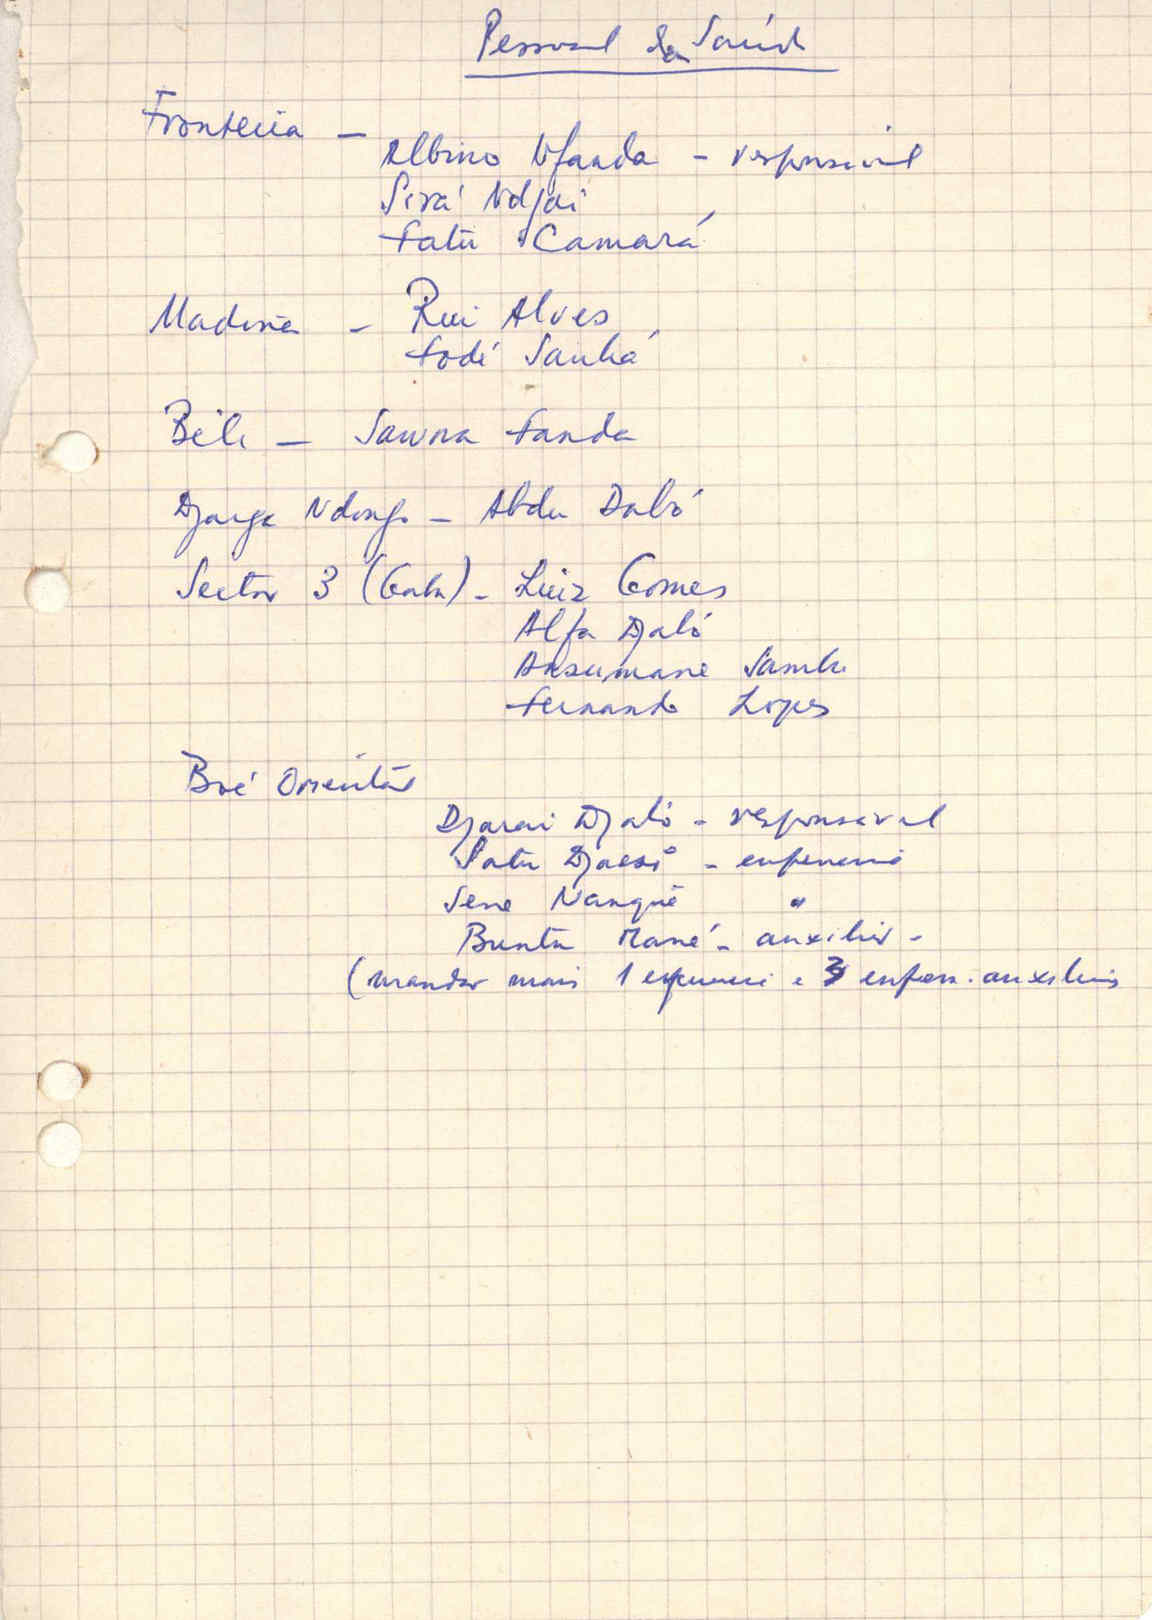 Pessoal da Saúde
Fronteira -
Albino Nfanda - responsável
Sirá Ndjai
Fatu Camará
Madina - Rui Alves
Fodé Sanhá
Béli - Fanda
Djanga Ndongo - Abdu Dabó
Sector 3 (Gabu) - Luiz Gomes
Alfa Djaló
Ansumane Sambu
Fernando Lopes
Boé Oriental
Djarai Djaló - responsável
Satu Djassi - enfermeira
Sene Nanqué "
Buntu Mané - auxiliar -
(mandar mais 1 enfermeiro e 3 enferm. auxiliares